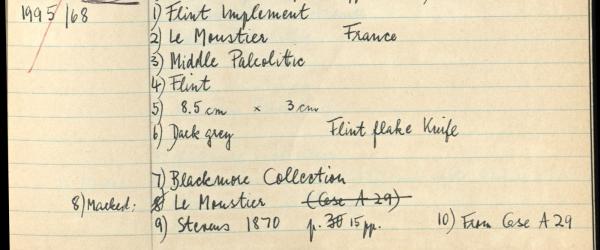 1995/68
1) Flint Implement
2) Le Moustier France
3) Middle Paleolitic
4) Flint
5) 8.5 cm x 3 cm
6) Dark grey Flint flake Knife
7) Blackmore Collection
8) Marked: 8) Le Moustier (Case A 29)
9) Stevens 1870 p. 30 15 pp. 10) From Case A 29